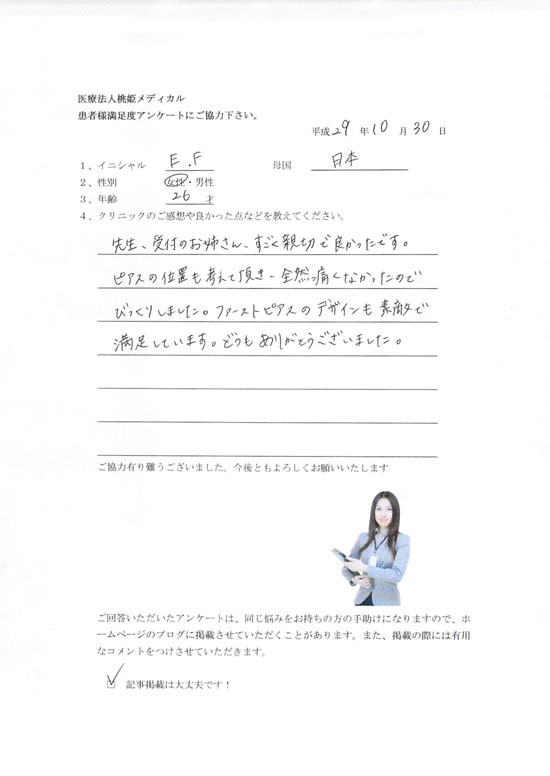 医療法人桃姫メディカル
患者様満足度アンケートにご協力下さい。
平成29年10月30日
1、イニシャル E.F 母国 日本
2、性別 女性・男性
3、年齢 26 才
4、クリニックのご感想や良かった点などを教えてください。
先生、受付のお姉さん、すごく親切で良かったです。
ピアスの位置も考えて頂き、全然っ痛くなかったので
びっくりしました。ファーストピアスのデザインも素敵で
満足しています。どうもありがとうございました。
ご協力有り難うございました。今後ともよろしくお願いいたします
ご回答いただいたアンケートは、同じ悩みをお持ちの方の手助けになりますので、ホ
ームページのブログに掲載させていただくことがあります。また、掲載の際には有用
なコメントをつけさせていただきます。
☑ 記事掲載は大丈夫です！